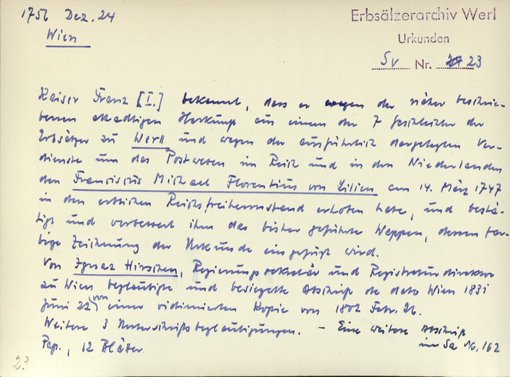 1756 Dez. 24
Wien
Erbsälzerarchiv Werl
Urkunden
Sv Nr. 23
Kaiser Franz [I.] bekennt, dass er wegen der näher beschrie-
benen adligen Herkunft aus einem der 7 Geschlechter der
Erbsälzer zu Werl und wegen der ausführlich dargelegten Ver-
dienste um das Postwesen im Reich und in den Niederlanden
den Franciscus Michael Florentius von Lilien am 14. März 1747
in den erblichen Reichsfreiherrnstand erhoben habe, und bestä-
tigt und verbessert ihm das bisher geführte Wappen, dessen far-
bige Zeichnung der Urkunde eingefügt wird.
Von Ignaz Hirschen, Regierungssekretär und Registraturdirektor
zu Wien beglaubigte und besiegelte Abschrift de dato Wien 1831
Juni 22 von einer vidimierten Kopie von 1802 Febr. 26.
Weitere 3 Unterschriftsbeglaubigungen. - Eine weitere Abschrift
im Sa Nr. 162
Pap., 12 Blätter
23